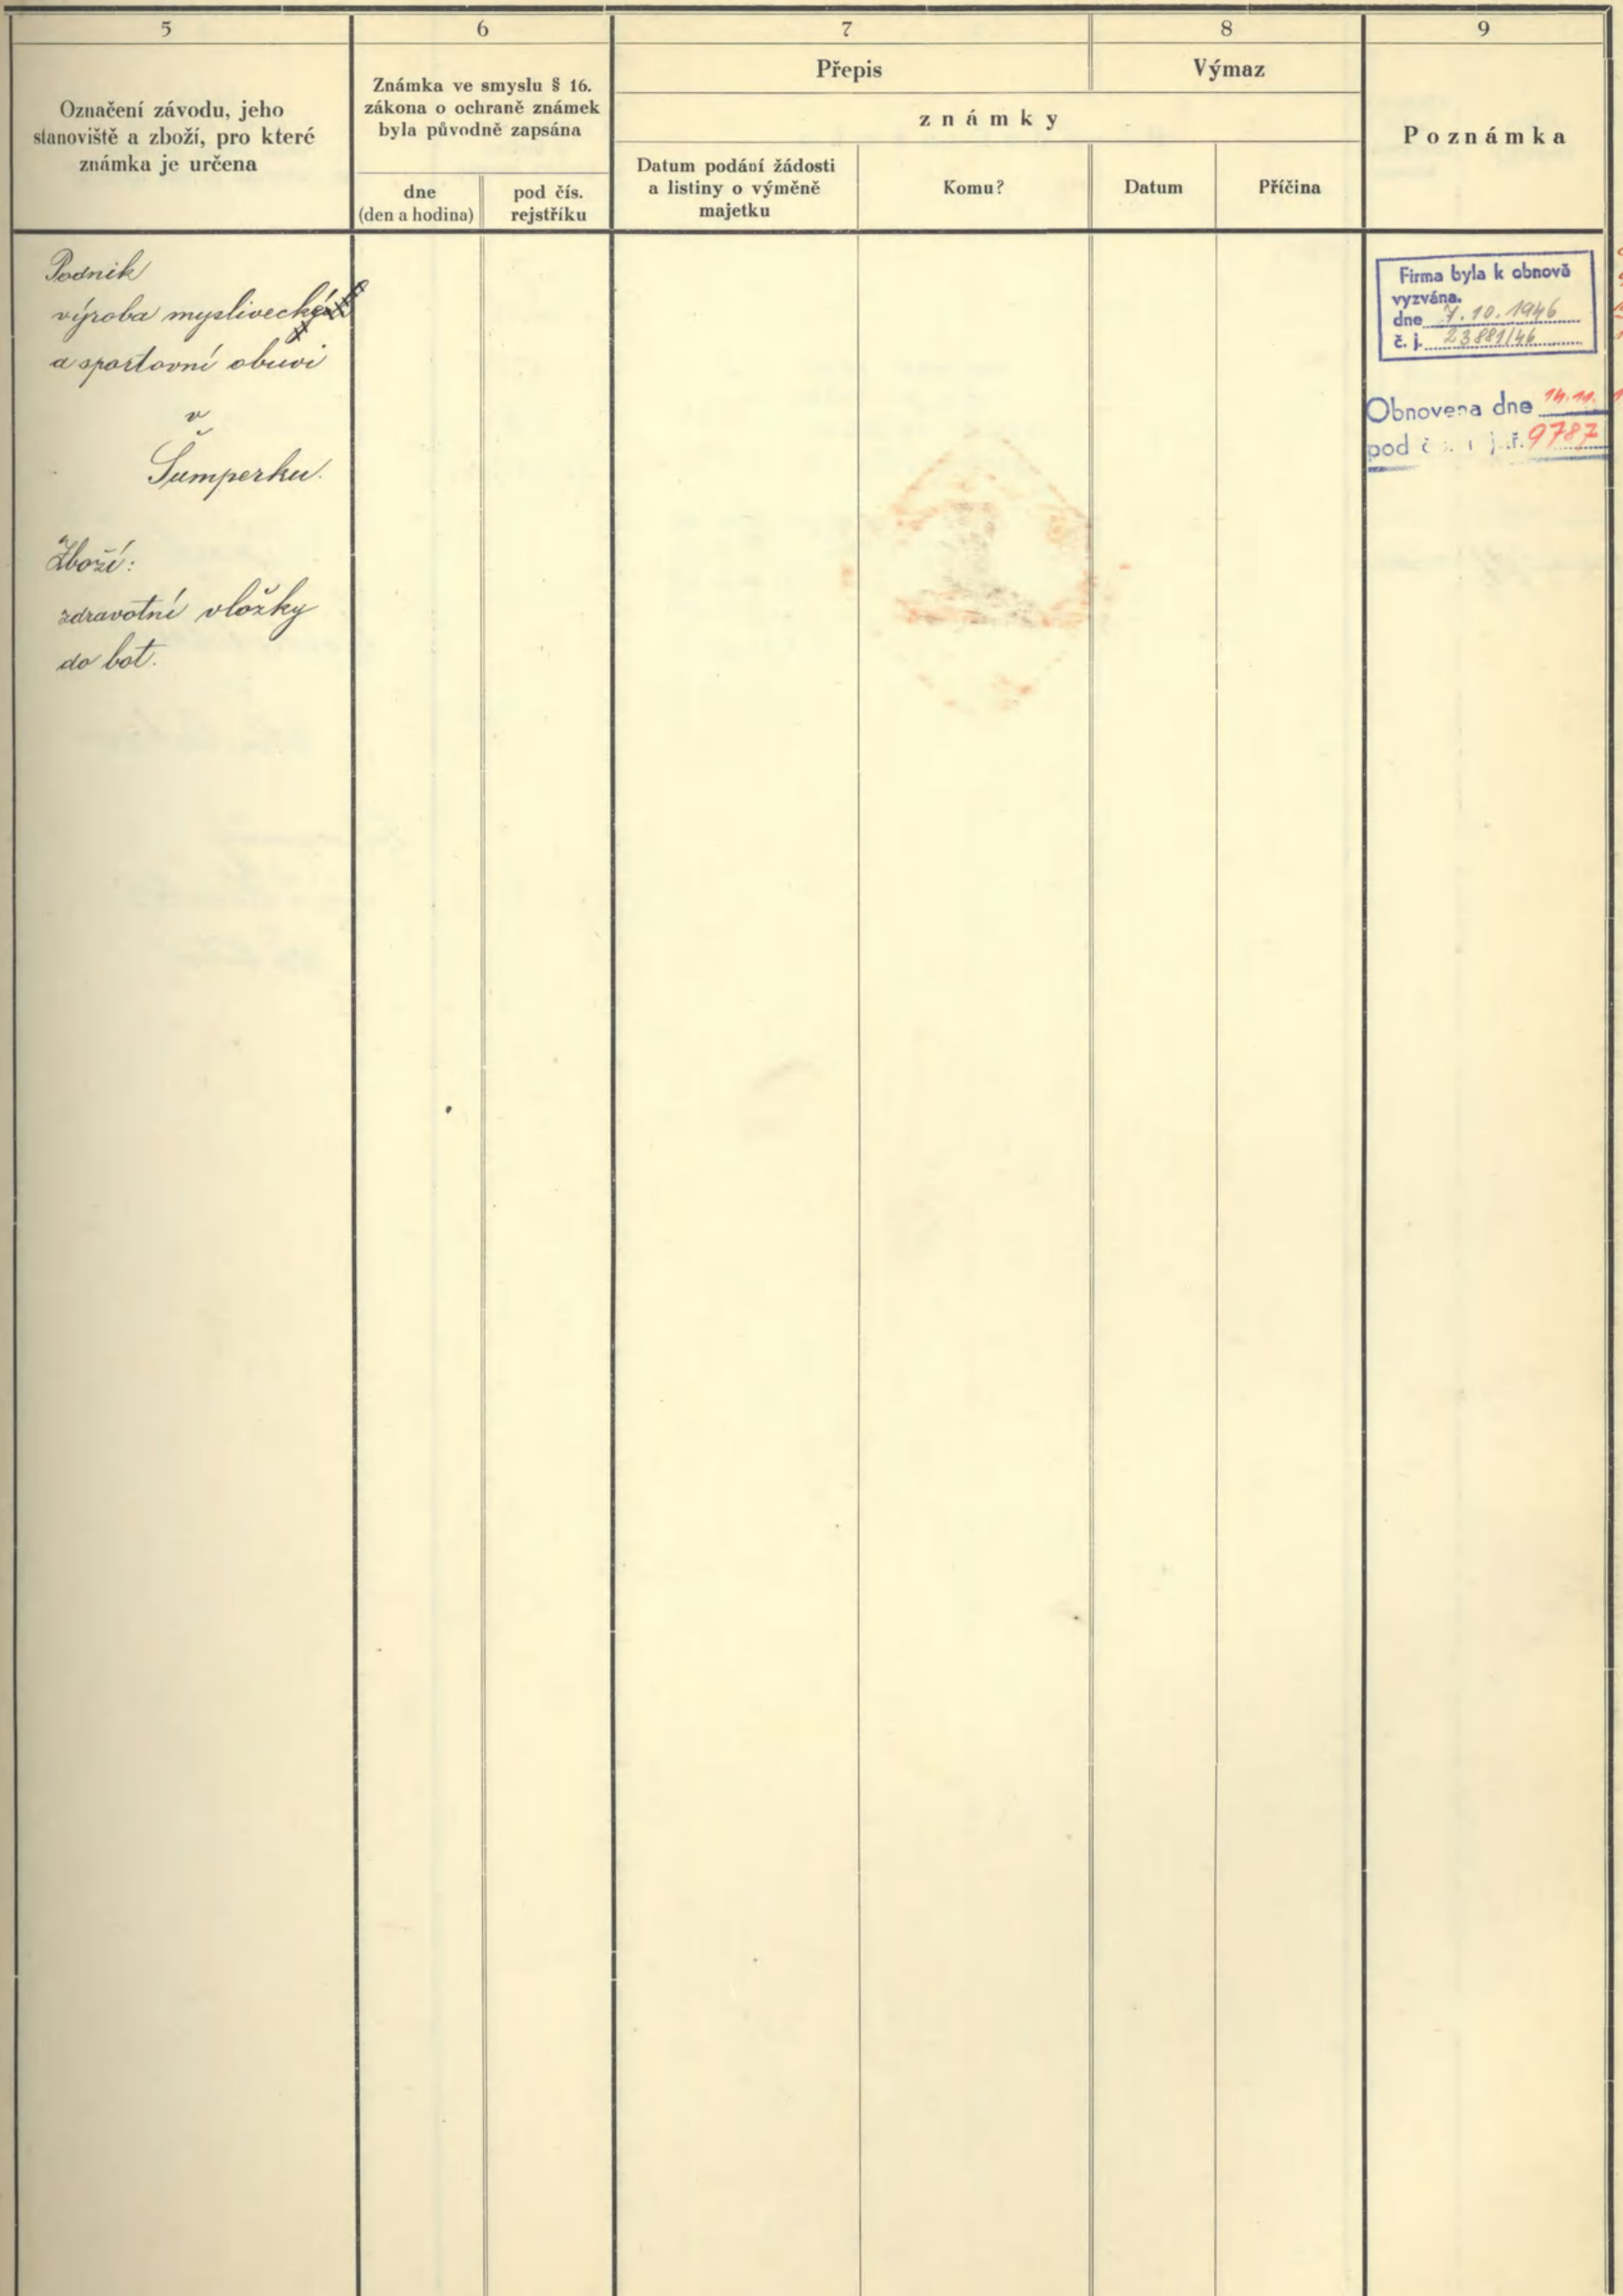 5
Označení závodu, jeho
stanoviště a zboží, pro které
známka je určena
6
Známka ve smyslu § 16.
zákona o ochraně známek
byla původně zapsána
dne
(den a hodina)
pod čís.
rejstříku
7
8
Přepis
Výmaz
známky
Datum podání žádosti
a listiny o výměně
majetku
Komu?
Datum
Příčina
9
Poznámka
Podnik
výroba myslivecké
a sportovní obuvi
v
Šumperku.
Zboží:
zdravotní vložky
do bot.
Firma byla k obnově
vyzvána.
dne 7.10.1946
č. j. 23881/46
Obnovena dne 14.11.
pod 9787